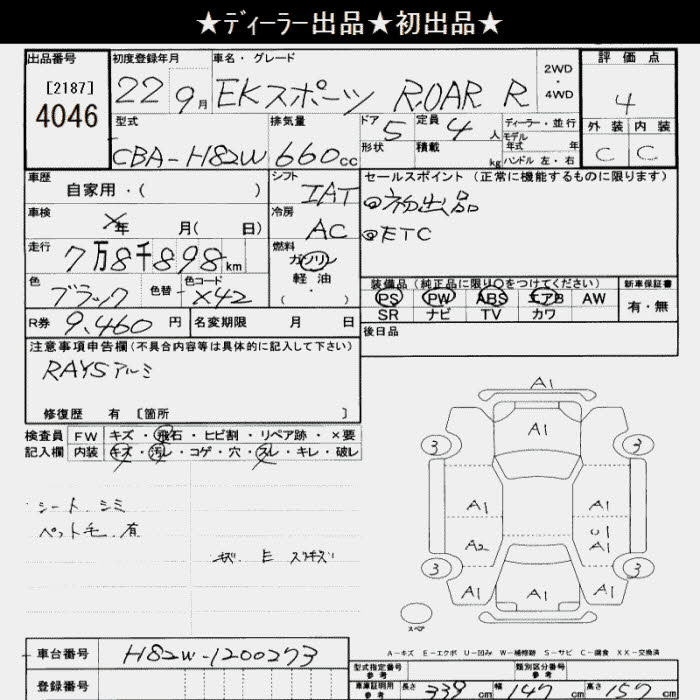 ★ディーラー出品★初出品★
出品番号 [2187] 4046
初度登録年月 22 9月
車名・グレード EKスポーツ ROAR R
2WD・4WD
評価点 4
外装 内装
C C
型式 CBA-H82W
排気量 660cc
ドア 5
形状
定員 4人
積載 kg
ディーラー・並行
モデル年式 年
ハンドル 左・右
車歴 自家用・( )
シフト IAT
セールスポイント (正常に機能するものに限ります)
◎初出品
◎ETC
車検 ×年 月( 日)
冷房 AC
走行 7万8千898km
燃料 ガソリン 軽油 ( ・ )
色 ブラック
色替
色コード X42
装備品(純正品に限り○をつけてください)
PS PW ABS エアB AW
SR ナビ TV カワ
新車保証書
有・無
R券 9,460円
名変期限 月 日
後日品
注意事項申告欄(不具合内容等は具体的に記入して下さい)
RAYSアルミ
修復歴 有 [箇所 ]
検査員記入欄
FW キズ・飛石・ヒビ割・リペア跡・×要
内装 キズ・汚レ・コゲ・穴・スレ・キレ・破レ
シート シミ
ペット毛 有
A1
A1
3 3
A1 A1
U1
A2 A1
3 3
A1 A1 A1
A1
スペア
A-キズ E-エクボ U-凹み W-補修跡 S-サビ C-腐食 XX-交換済
車台番号 H82W-1200273
登録番号
型式指定番号 参考
類別区分番号 参考
車庫証明用 参考 長さ 339cm 幅 147cm 高さ 157cm